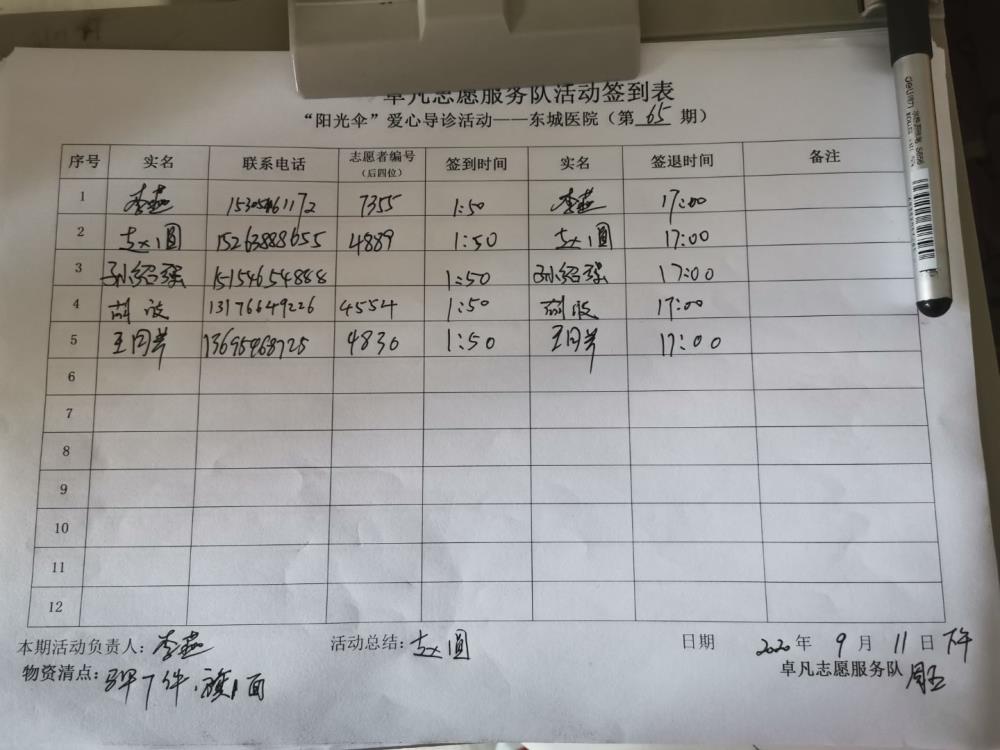 卓凡志愿服务队活动签到表
“阳光伞”爱心导诊活动——东城医院（第 65 期）
序号 实名 联系电话 志愿者编号（后四位） 签到时间 实名 签退时间 备注
1 李燕 7355 1:50 李燕 17:00
2 赵圆 15263888655 4889 1:50 赵圆 17:00
3 孙绍强 15154654888 1:50 孙绍强 17:00
4 13176649226 4554 1:50 17:00
5 王同兰 13695468725 4830 1:50 王同兰 17:00
6
7
8
9
10
11
12
本期活动负责人：李燕 活动总结：赵圆 日期 2020年 9 月 11 日 下午
物资清点： 7件、旗1面 卓凡志愿服务队 周五
deli